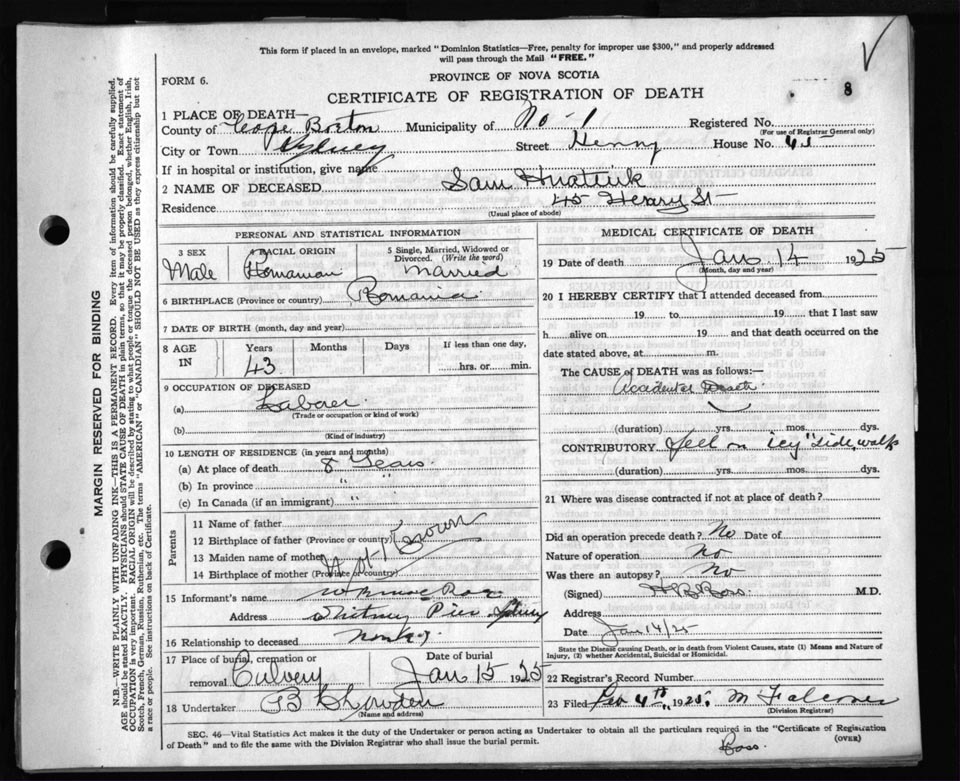 This form if placed in an envelope, marked "Dominion Statistics—Free, penalty for improper use $300," and properly addressed
will pass through the Mail "FREE."
FORM 6.
PROVINCE OF NOVA SCOTIA
8
CERTIFICATE OF REGISTRATION OF DEATH
1 PLACE OF DEATH—
County of Cape Breton Municipality of No-1 Registered No.
(For use of Registrar General only)
City or Town Sydney Street Henry House No. 45
If in hospital or institution, give name
2 NAME OF DECEASED Sam
Residence 45 Henry St
(Usual place of abode)
PERSONAL AND STATISTICAL INFORMATION
3 SEX Male
4 RACIAL ORIGIN Romanian
5 Single, Married, Widowed or Divorced. (Write the word) Married
6 BIRTHPLACE (Province or country) Romania
7 DATE OF BIRTH (month, day and year)
8 AGE IN Years 43 Months Days If less than one day, hrs. or min.
9 OCCUPATION OF DECEASED
(a) Laborer
(Trade or occupation or kind of work)
(b)
(Kind of industry)
10 LENGTH OF RESIDENCE (in years and months)
(a) At place of death 8 Years
(b) In province " "
(c) In Canada (if an immigrant) " "
Parents
11 Name of father
12 Birthplace of father (Province or country)
13 Maiden name of mother
14 Birthplace of mother (Province or country)
Not Known
15 Informant's name
Address Whitney Pier Sydney
16 Relationship to deceased
17 Place of burial, cremation or removal Calvery Date of burial Jan 15 1925
18 Undertaker
(Name and address)
MEDICAL CERTIFICATE OF DEATH
19 Date of death Jan 14 1925
(Month, day and year)
20 I HEREBY CERTIFY that I attended deceased from
19 to 19 that I last saw
h alive on 19 and that death occurred on the
date stated above, at m.
The CAUSE OF DEATH was as follows:—
Accidental Death
(duration) yrs. mos. dys.
CONTRIBUTORY fell on icy sidewalk
(duration) yrs. mos. dys.
21 Where was disease contracted if not at place of death?
Did an operation precede death? No Date of
Nature of operation no
Was there an autopsy? No
(Signed) Ross M.D.
Address
Date Jan 14/25
State the Disease causing Death, or in death from Violent Causes, state (1) Means and Nature of
Injury, (2) whether Accidental, Suicidal or Homicidal.
22 Registrar's Record Number
23 Filed Feb 4th 1925.
(Division Registrar)
SEC. 46—Vital Statistics Act makes it the duty of the Undertaker or person acting as Undertaker to obtain all the particulars required in the "Certificate of Registration
of Death" and to file the same with the Division Registrar who shall issue the burial permit.
(OVER)
Ross
MARGIN RESERVED FOR BINDING
N.B.—WRITE PLAINLY WITH UNFADING INK—THIS IS A PERMANENT RECORD. Every item of information should be carefully supplied.
AGE should be stated EXACTLY. PHYSICIANS should STATE CAUSE OF DEATH in plain terms, so that it may be properly classified. Exact statement of
OCCUPATION is very important. RACIAL ORIGIN will be described by stating to what people or tongue the deceased person belonged, whether English, Irish,
Scotch, French, German, Russian, Ruthenian, etc. The terms "AMERICAN" or "CANADIAN" SHOULD NOT BE USED as they express citizenship but not
a race or people. See instructions on back of Certificate.